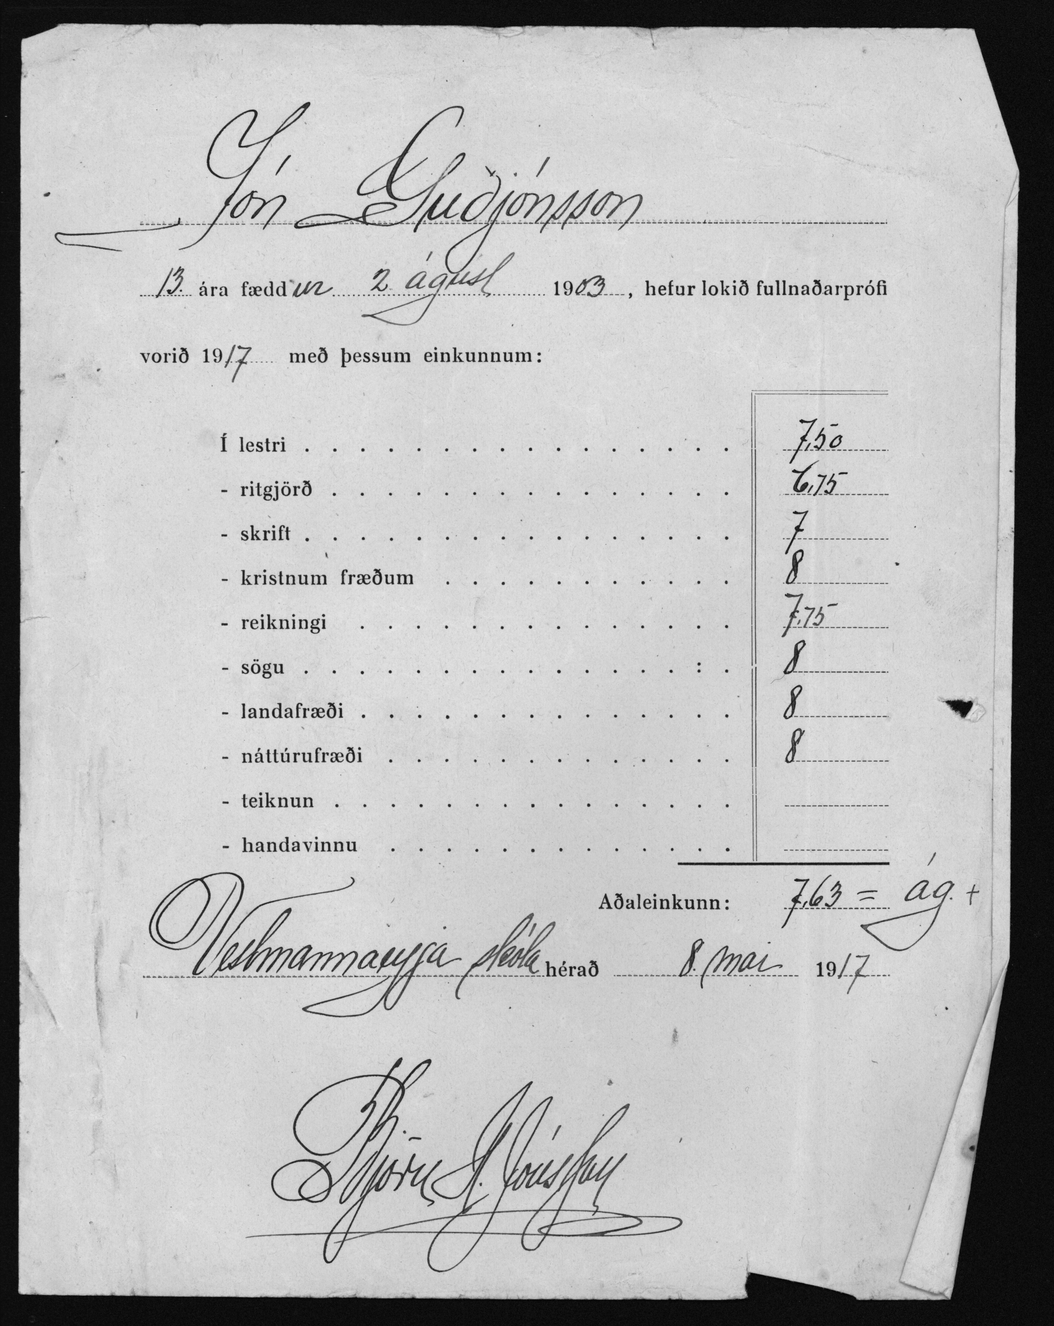 Jón Guðjónsson
13 ára fæddur 2 ágúst 1903, hefur lokið fullnaðarprófi
vorið 1917 með þessum einkunnum:
Í lestri 7,50
- ritgjörð 6,75
- skrift 7
- kristnum fræðum 8
- reikningi 7,75
- sögu 8
- landafræði 8
- náttúrufræði 8
- teiknun
- handavinnu
Aðaleinkunn: 7,63 = ág. +
Vestmannaeyja skóla hérað 8. mai 1917
Björn H. Jónsson